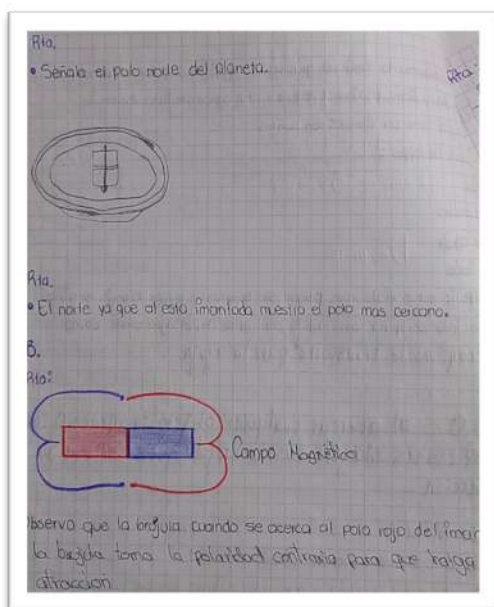 Rta.
• Señala el polo norte del planeta.
Rta
Rta.
• El norte ya que al esta imantada mestra el polo mas cercano.
B.
Rta:
Campo Magnético
Observo que la brujula cuando se acerca al polo rojo del iman
la brujula toma la polaridad contraria para que haiga
atracción